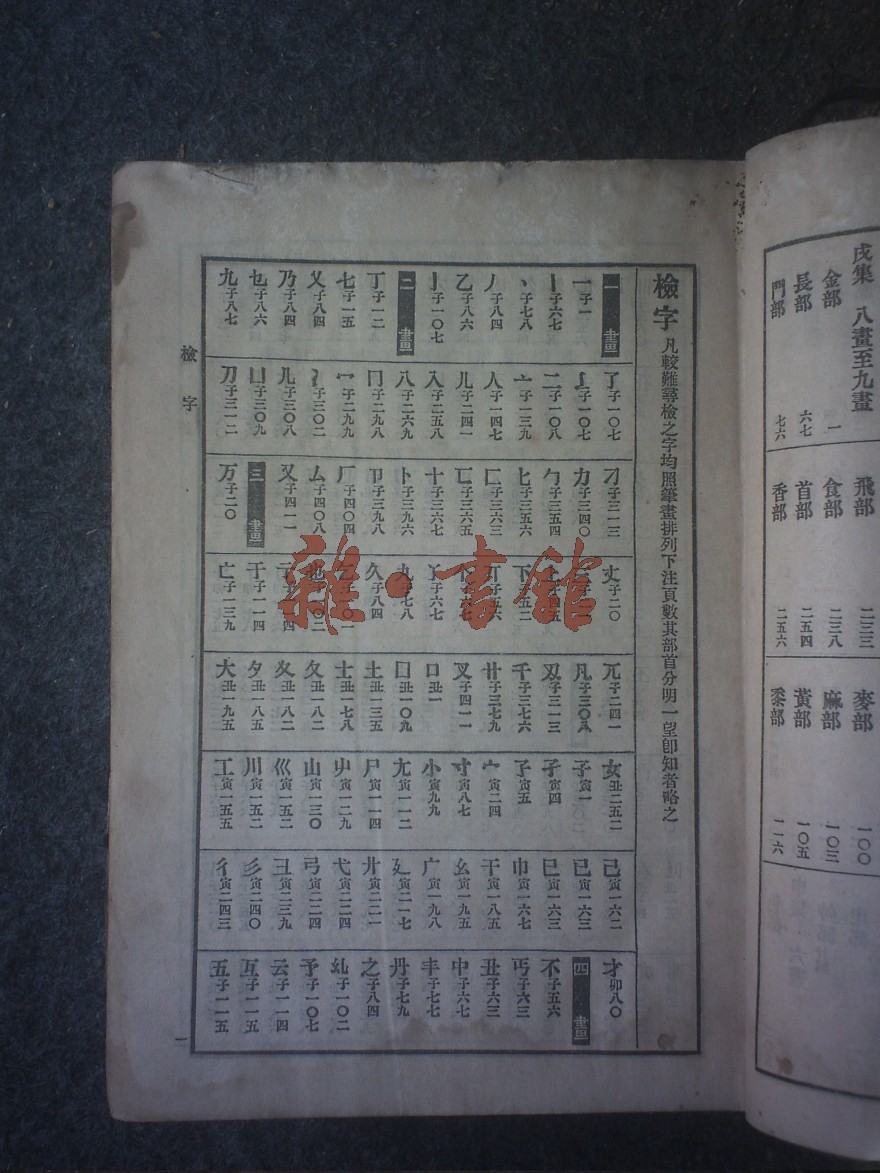 戌集 八畫至九畫
金部 一
長部 六七
門部 七六
飛部 二三三
食部 二三八
首部 二五四
香部 二五六
麥部 一〇〇
麻部 一〇三
黃部 一〇五
黍部 一一六
檢字 凡較難尋檢之字均照筆畫排列下注頁數其部首分明一望卽知者略之
一畫
一子一
丨子六七
丶子七八
丿子八四
乙子八六
亅子一〇七
二畫
丁子一二
七子一五
乂子八四
乃子八四
乜子八六
九子八七
了子一〇七
二子一〇八
亠子一三九
人子一四七
儿子二四一
入子二五八
八子二六九
冂子二九八
冖子二九九
冫子三〇二
几子三〇八
凵子三〇九
刀子三一二
刁子三一三
力子三四〇
勹子三五四
匕子三五六
匚子三六三
匸子三六五
十子三六七
卜子三九六
卩子三九八
厂子四〇四
厶子四〇八
又子四一一
三畫
万子二〇
丈子二〇
下子五二
丫子六七
久子八四
于子一一四
亡子一三九
兀子二四一
凡子三〇八
刄子三一三
千子三七六
廿子三七九
叉子四一一
口丑一
囗丑一〇九
土丑一三五
士丑一七八
夂丑一八二
夊丑一八二
夕丑一八五
大丑一九五
女丑二五二
子寅一
孑寅四
孓寅五
宀寅二四
寸寅八七
小寅九九
尢寅一一二
尸寅一一四
屮寅一二九
山寅一三〇
巛寅一五二
川寅一五二
工寅一五五
己寅一六二
已寅一六三
巳寅一六三
巾寅一六七
干寅一八五
幺寅一九五
广寅一九八
廴寅二一七
廾寅二二一
弋寅二二四
弓寅二二四
彐寅二三九
彡寅二四〇
彳寅二四三
才卯八〇
四畫
不子五六
丏子六三
丑子六三
中子六七
丰子七七
丹子七九
之子八四
乣子一〇二
予子一〇七
云子一一四
互子一一五
五子一一五
檢字
一
雜·書館